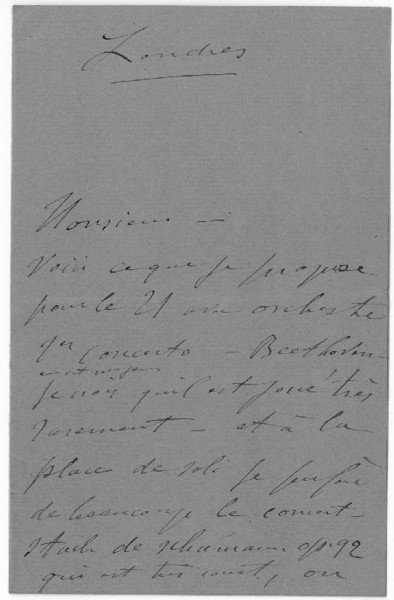 Londres
Monsieur —
Voici ce que je propose
pour le 21 avec orchestre
1er concerto — Beethoven —
en ut majeur
je crois qu'il est joué très
rarement — et à la
place de soli je préfère
de beaucoup le concert-
stück de Schumann op. 92
qui est très court, ou